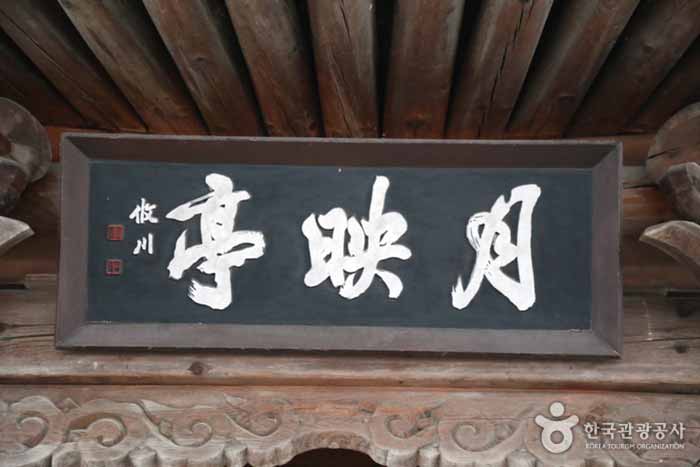 月映亭
攸川
한국관광공사
KOREA TOURISM ORGANIZATION